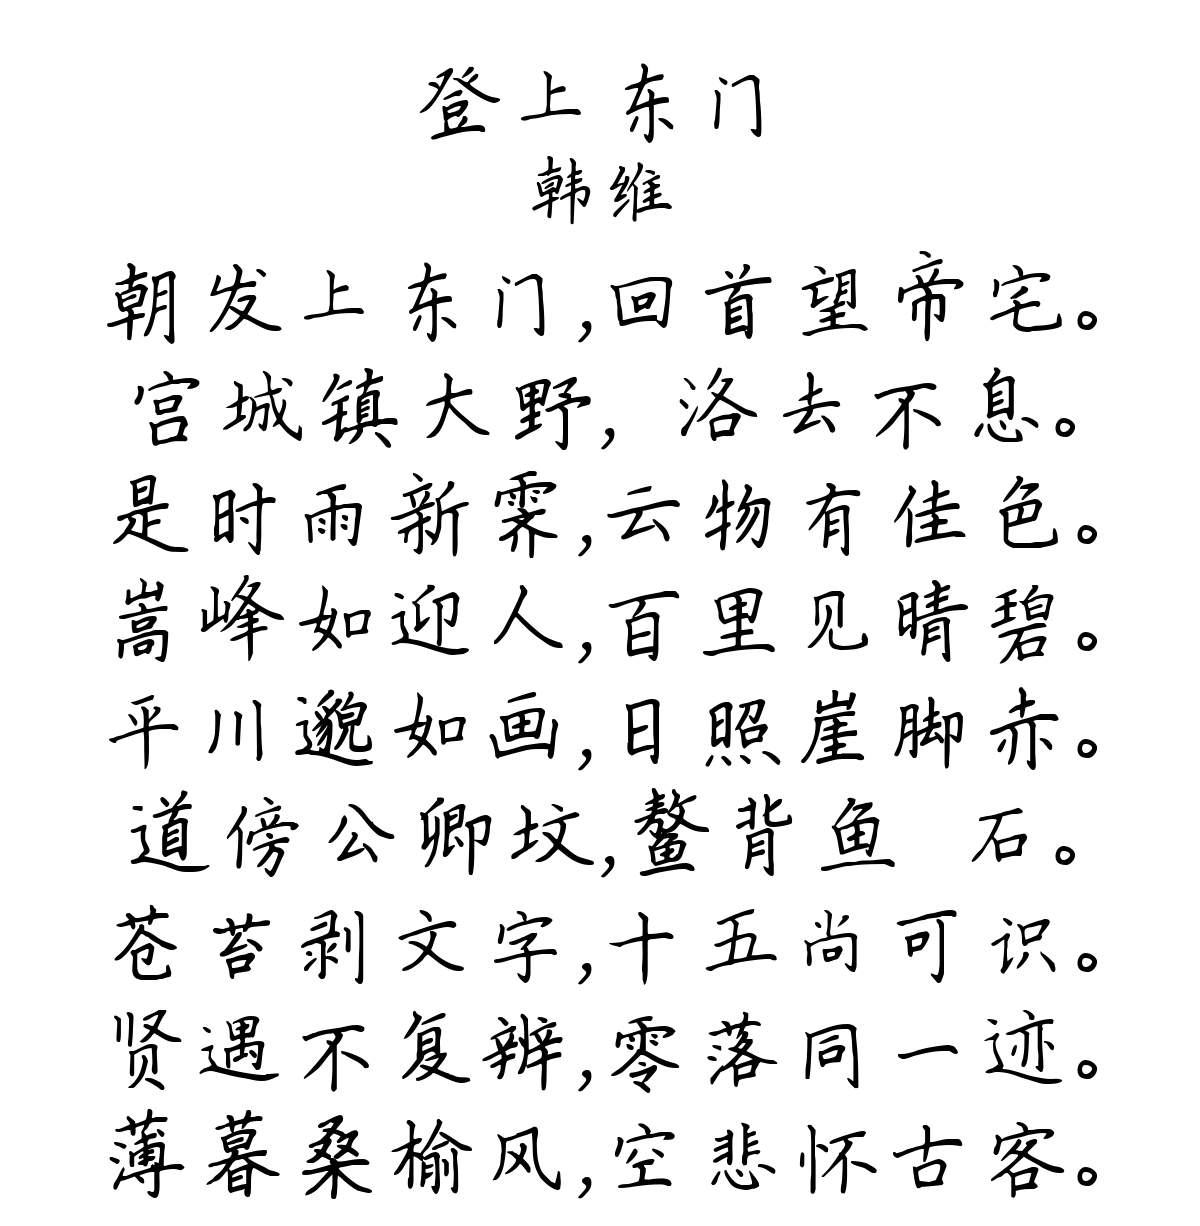 登上东门
韩维
朝发上东门,回首望帝宅。
宫城镇大野,洛去不息。
是时雨新霁,云物有佳色。
嵩峰如迎人,百里见晴碧。
平川邈如画,日照崖脚赤。
道傍公卿坟,鳌背鱼 石。
苍苔剥文字,十五尚可识。
贤遇不复辨,零落同一迹。
薄暮桑榆风,空悲怀古客。